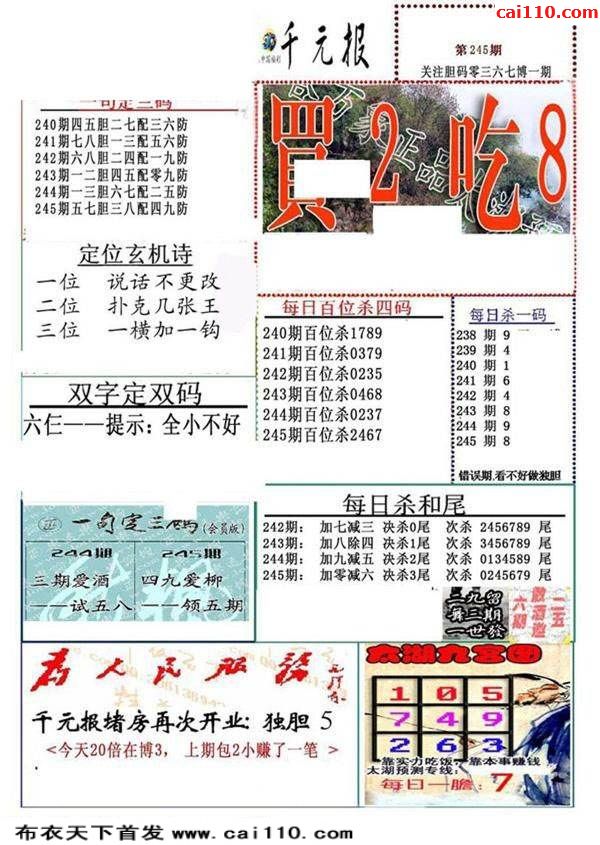 cai110.com
千元报
第245期
关注胆码零三六七博一期
一句定三码
240期四五胆二七配三六防
241期七八胆一三配五六防
242期六八胆二四配一九防
243期一二胆四五配零九防
244期一三胆六七配二五防
245期五七胆三八配四九防
買2吃8
定位玄机诗
一位 说话不更改
二位 扑克几张王
三位 一横加一钩
每日百位杀四码
240期百位杀1789
241期百位杀0379
242期百位杀0235
243期百位杀0468
244期百位杀0237
245期百位杀2467
每日杀一码
238 期 9
239 期 4
240 期 1
241 期 6
242 期 4
243 期 8
244 期 9
245 期 8
错误期,看不好做独胆
双字定双码
六仨——提示: 全小不好
一句定三码(会员版)
244期 245期
三期爱酒 四九爱柳
——试五八 ——领五期
每日杀和尾
242期: 加七减三 决杀0尾 次杀 2456789 尾
243期: 加八除四 决杀1尾 次杀 3456789 尾
244期: 加九减五 决杀2尾 次杀 0134589 尾
245期: 加零减六 决杀3尾 次杀 0245679 尾
为人民服务
千元报堵房再次开业: 独胆 5
<今天20倍在博3, 上期包2小赚了一笔 >
太湖九宫图
1 0 5
7 4 9
2 6 3
靠实力吃饭, 靠本事赚钱
太湖预测专线:
每日一胆: 7
布衣天下首发 www.cai110.com